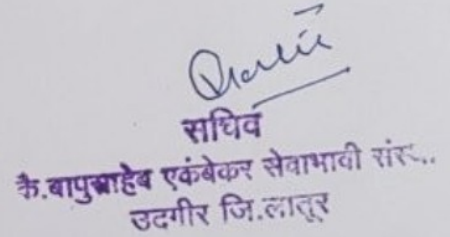 सचिव
कै.बापुसाहेब एकंबेकर सेवाभावी
उदगीर जि.लातूर